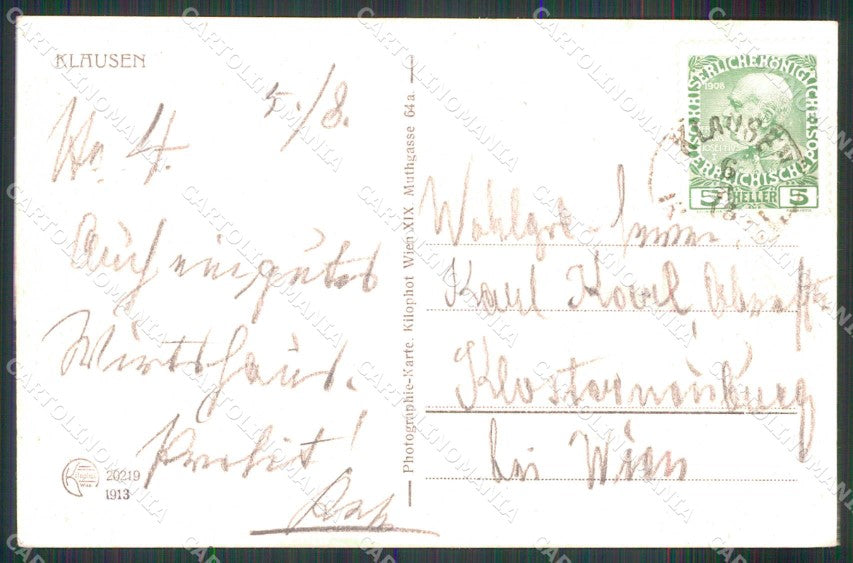 KLAUSEN
No 4. 5./8.
Auch ein gutes
Wirtshaus.
Prosit!
20219
1913
Photographie-Karte. Kilophot Wien XIX Muthgasse 64a.
KAISERLICHE KÖNIGLICHE
ÖSTERREICHISCHE POST
1908
5 HELLER 5
KLAUSEN
Wohlgeb. Herrn
Karl
Klosterneuburg
bei Wien
CARTOLINOMANIA